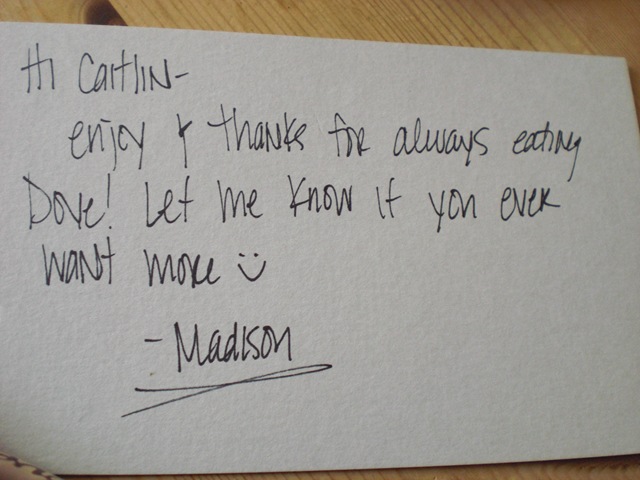 Hi Caitlin-
enjoy & thanks for always eating
Dove! Let me know if you ever
want more :)
- Madison